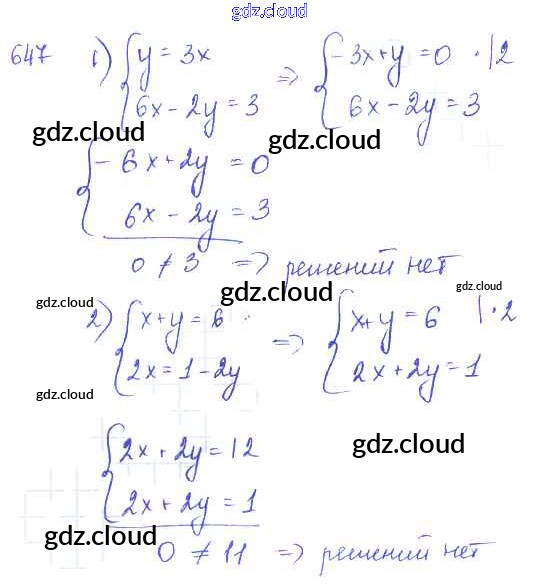 gdz.cloud
647 1) { y = 3x => { -3x+y = 0 ·|2
6x - 2y = 3 6x - 2y = 3
gdz.cloud gdz.cloud
{ -6x + 2y = 0
6x - 2y = 3
0 ≠ 3 => решений нет
gdz.cloud gdz.cloud gdz.cloud
2) { x + y = 6 => { x + y = 6 |·2
2x = 1 - 2y 2x + 2y = 1
gdz.cloud
{ 2x + 2y = 12
gdz.cloud
2x + 2y = 1
gdz.cloud
0 ≠ 11 => решений нет
gdz.cloud